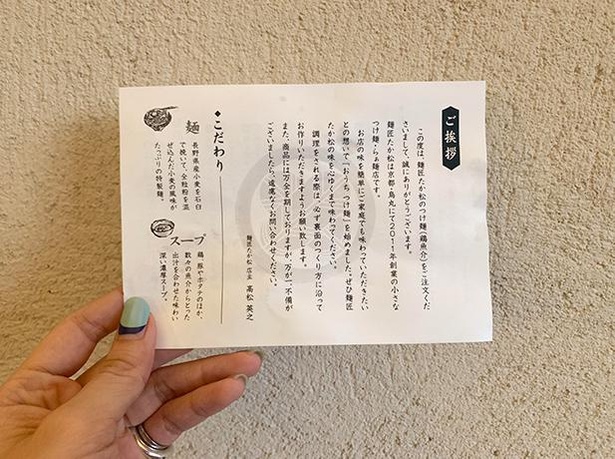 ご挨拶
この度は、麺匠たか松のつけ麺(鶏魚介)をご注文くだ
さいまして、誠にありがとうございます。
麺匠たか松は京都・烏丸にて2011年創業の小さな
つけ麺・らぁ麺店です。
お店の味を簡単にご家庭でも味わっていただきたい
との想いで「おうちつけ麺」を始めました。ぜひ麺匠
たか松の味を心ゆくまで味わってください。
調理をされる際は、必ず裏面のつくり方に沿って
お作りいただきますようお願い致します。
また、商品には万全を期しておりますが、万が一、不備が
ございましたら、遠慮なくお問い合わせください。
麺匠たか松 店主 髙松 英之
◆こだわり
麺
長野県産小麦を石臼
で挽いて、全粒粉を混
ぜ込んだ小麦の風味が
たっぷりの特製麺。
スープ
鶏、豚やホタテのほか、
数々の魚介からとった
出汁を合わせた味わい
深い濃厚スープ。